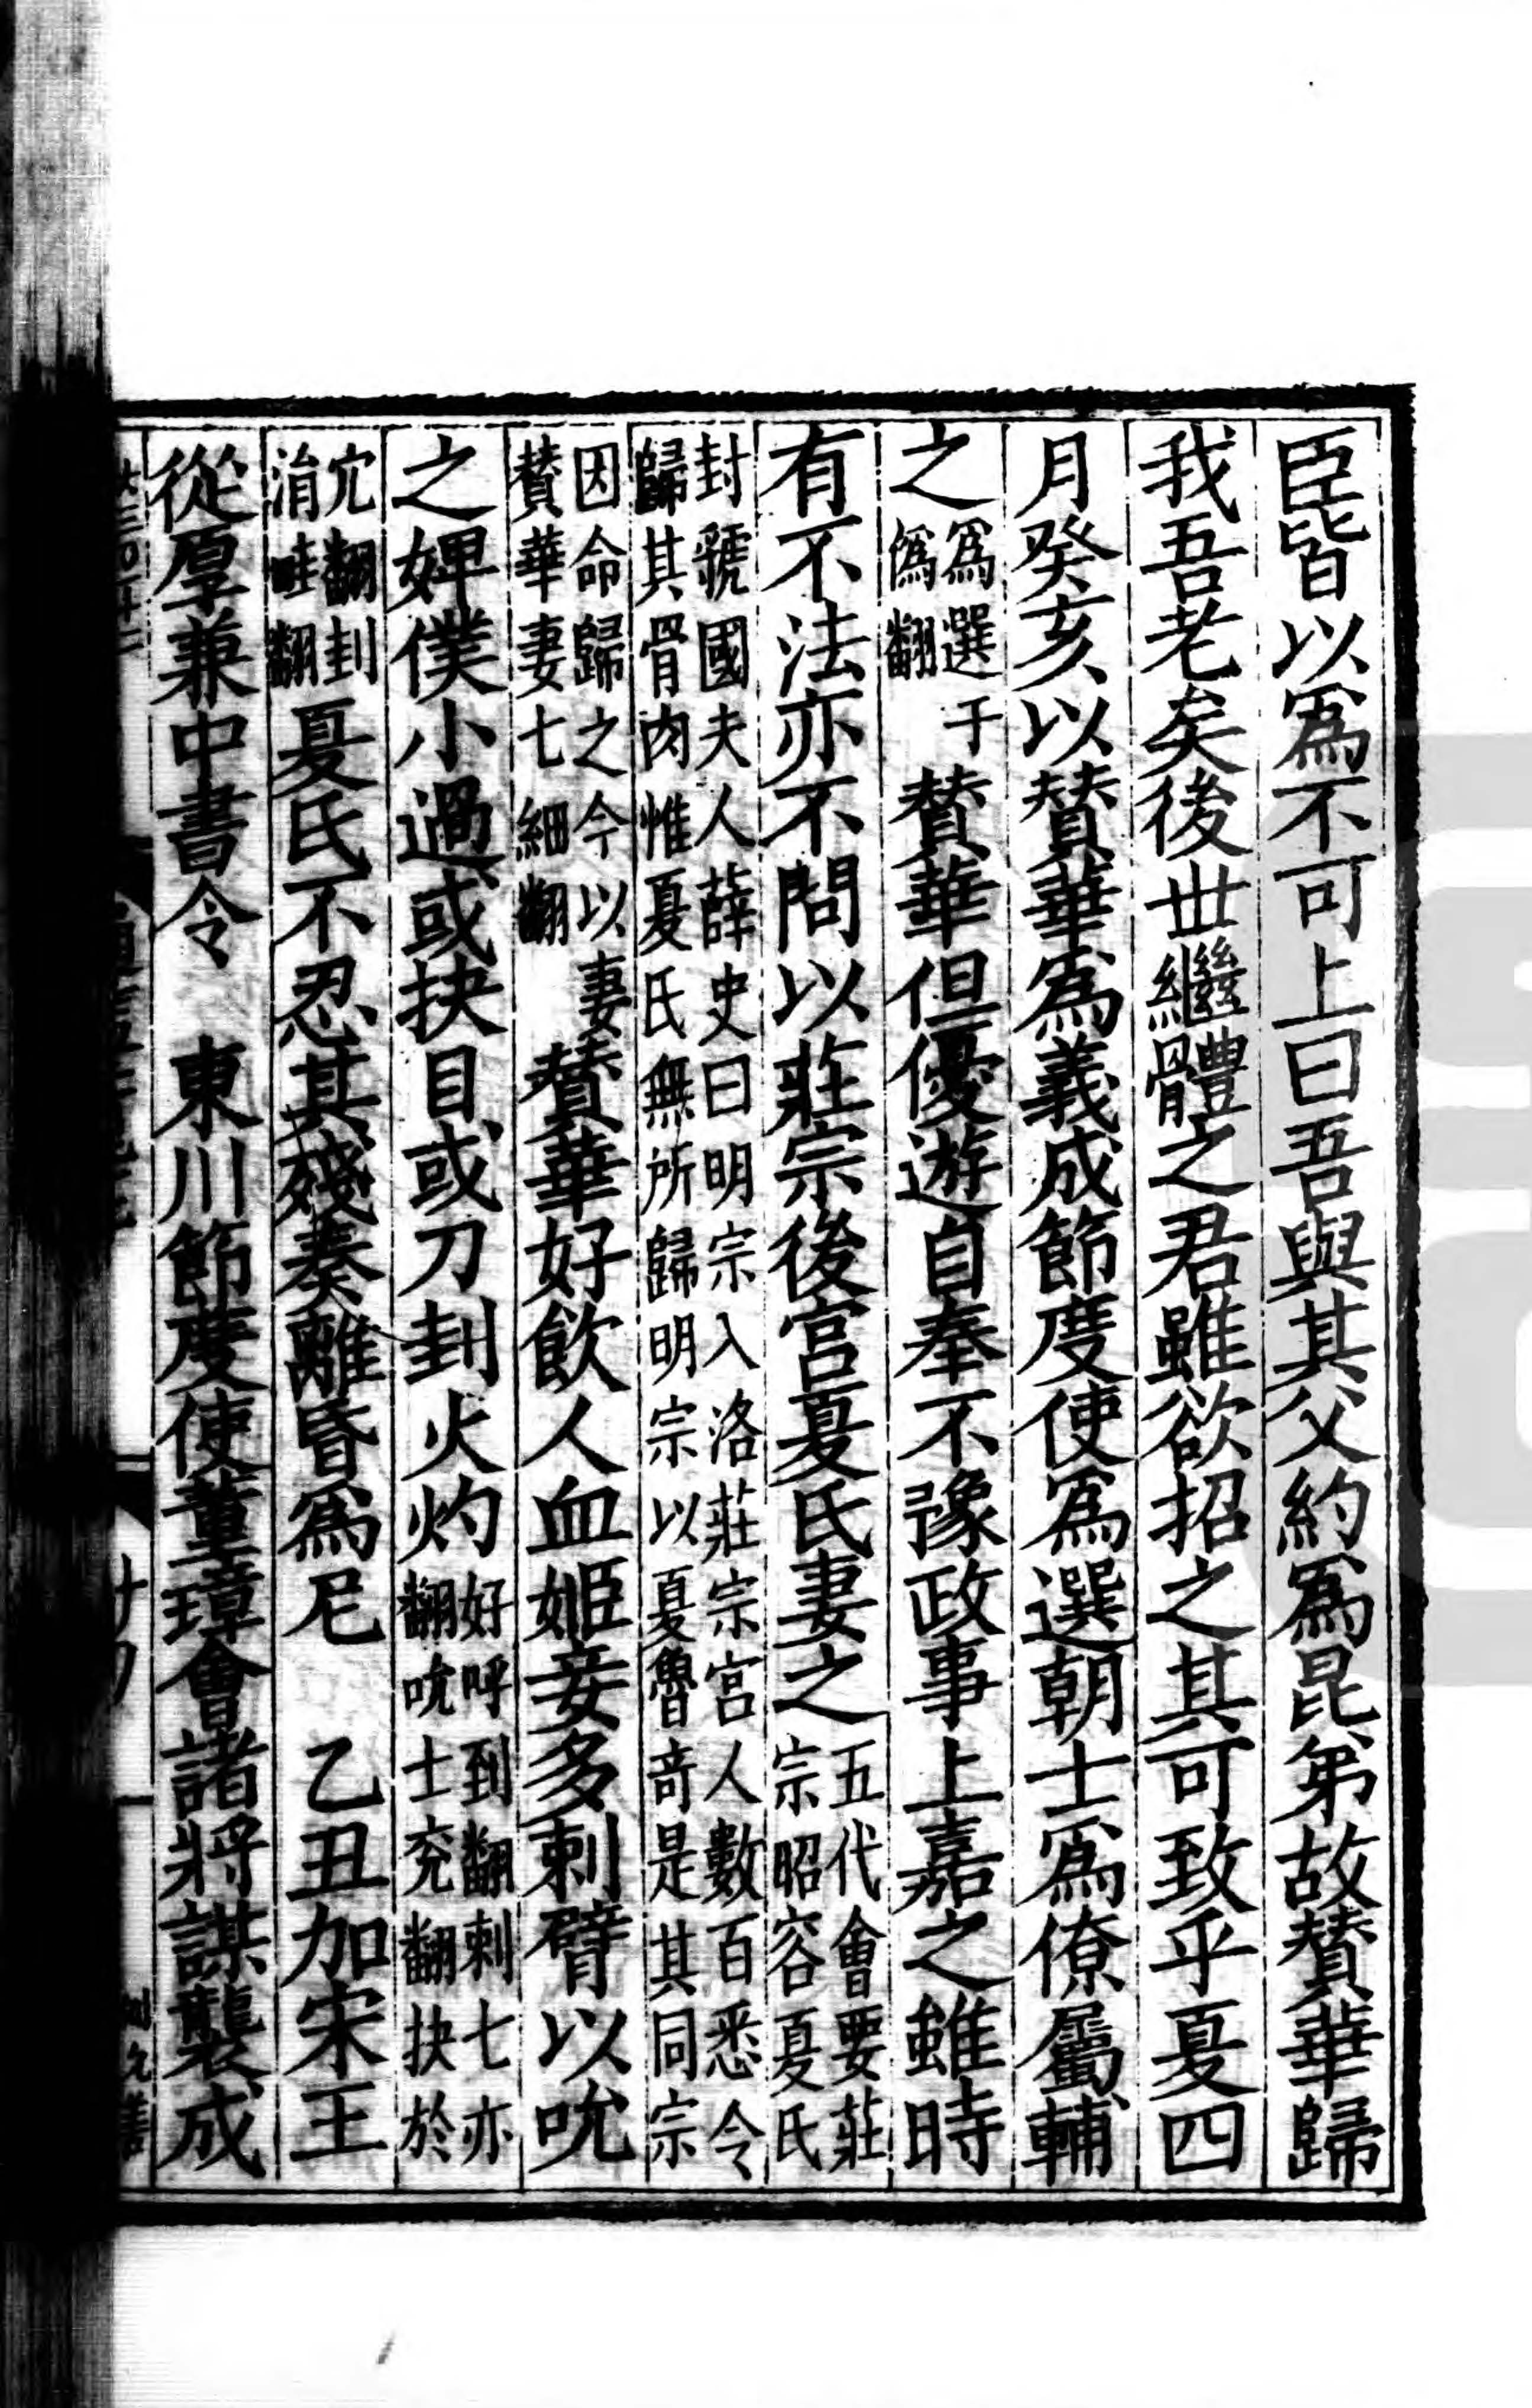 臣皆以爲不可上曰吾與其父約爲昆弟故賛華歸
我吾老矣後世繼體之君雖欲招之其可致乎夏四
月癸亥以賛華爲義成節度使爲選朝士爲僚屬輔
之爲選于
僞翻
賛華但優遊自奉不豫政事上嘉之雖時
有不法亦不問以莊宗後宮夏氏妻之五代會要莊
宗昭容夏氏
封虢國夫人薛史曰明宗入洛莊宗宮人數百悉令
歸其骨肉惟夏氏無所歸明宗以夏魯竒是其同宗
因命歸之今以妻
賛華妻七細翻
賛華好飲人血姬妾多刺臂以吮
之婢僕小過或抉目或刀刲火灼好呼到翻刺七亦
翻吮士兖翻抉於
穴翻刲
涓畦翻
夏氏不忍其殘奏離昏爲尼　乙丑加宋王
從厚兼中書令　東川節度使董璋會諸將謀襲成